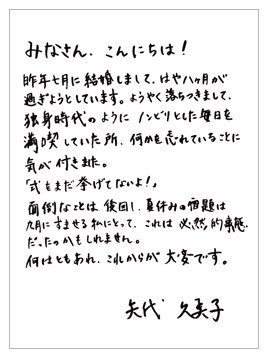 みなさん、こんにちは!
昨年七月に結婚しまして、はや八ヶ月が
過ぎようとしています。ようやく落ちつきまして、
独身時代のように ノンビリとした毎日を
満喫していた所、何かを忘れていることに
気が付きました。
「式もまだ挙げてないよ!」
面倒なことは後回し、夏休みの宿題は
九月にすませる私にとって、これは必然的事態
だったのかもしれません。
何はともあれ、これからが大変です。
矢代 久美子